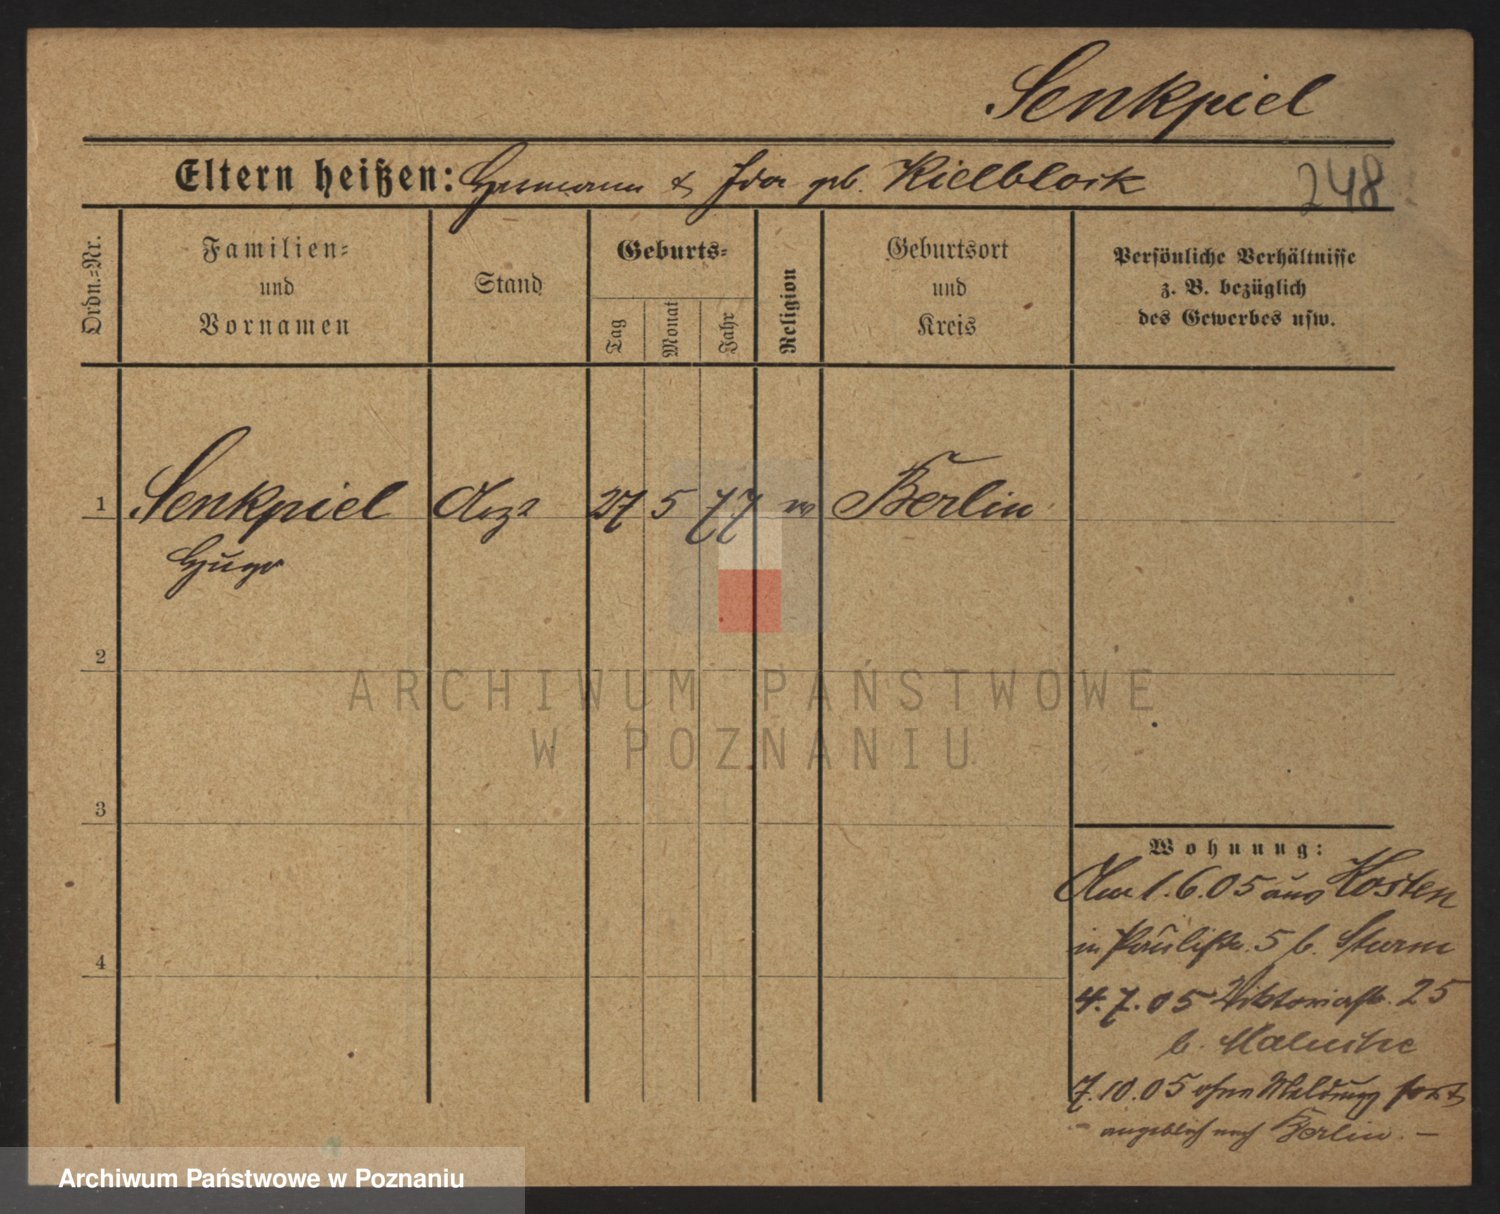 Senkpiel
Eltern heißen: Hermann & Ida geb. Kielblock
248
Ordn.=Nr.
Familien=
und
Vornamen
Stand
Geburts=
Tag
Monat
Jahr
Religion
Geburtsort
und
Kreis
Persönliche Verhältnisse
z. B. bezüglich
des Gewerbes usw.
1 Senkpiel Arzt 27 5 77 Berlin
Hugo
2
3
4
Wohnung:
Am 1.6.05 aus Kosten
in Paulistr. 5 b. Sturm
4.7.05 Viktoriastr. 25
b.
7.10.05 ohne Meldung fort
angeblich nach Berlin. –
ARCHIWUM PAŃSTWOWE
W POZNANIU
Archiwum Państwowe w Poznaniu